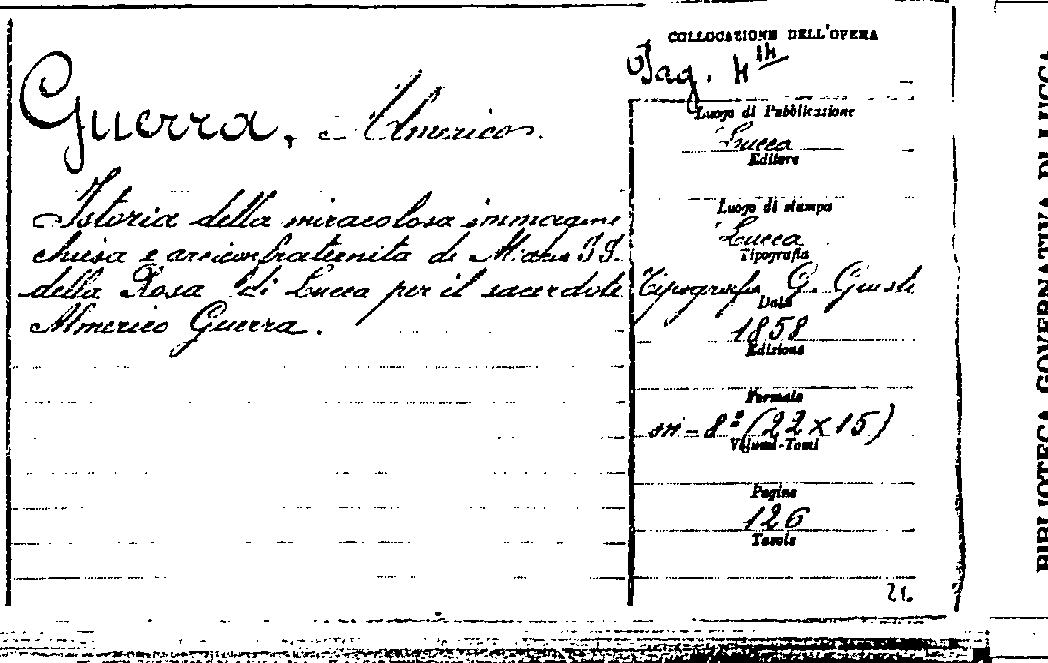 COLLOCAZIONE DELL'OPERA
Pag. 4
Guerra, Almerico.
Istoria della miracolosa immagine
chiesa e arciconfraternita di Maria SS.
della Rosa di Lucca per il sacerdote
Almerico Guerra.
Luogo di Pubblicazione
Lucca
Editore
Luogo di stampa
Lucca
Tipografia
Tipografia G. Giusti
Data
1858
Edizione
Formato
in-8º (22 x 15)
Volumi-Tomi
Pagine
126
Tavole
BIBLIOTECA GOVERNATIVA DI LUCCA